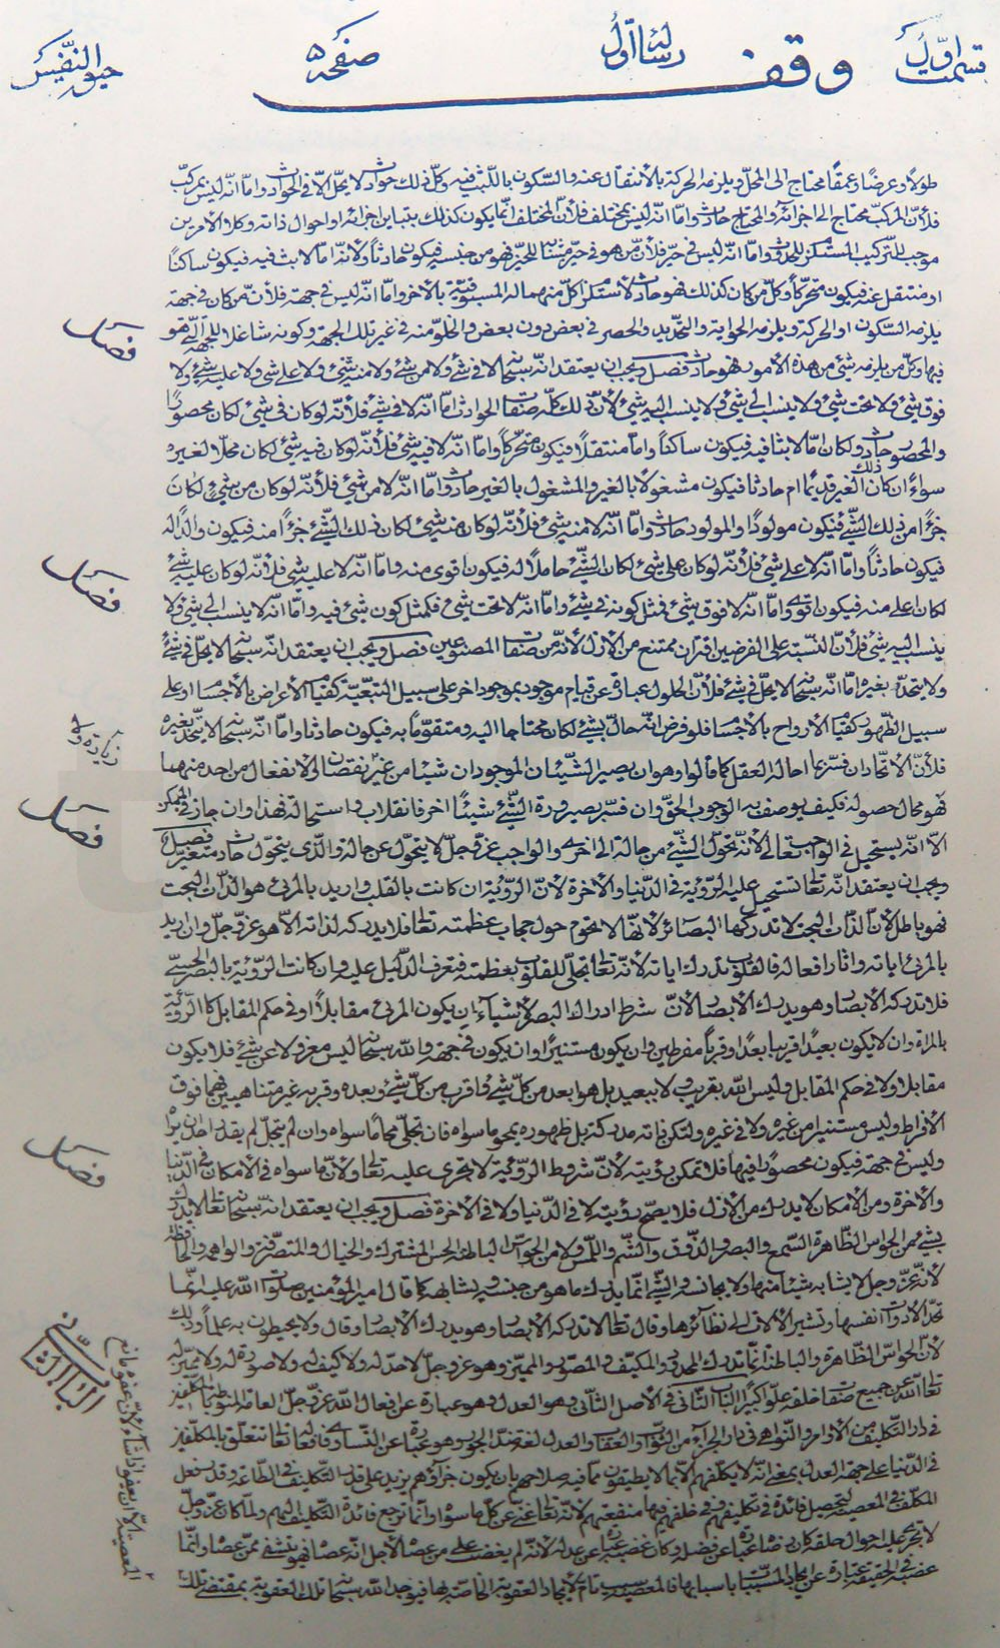 قسمت اوّل
رساله اول
وقف
صفحه ۵
حيوة النّفس
طولاً وعرضاً وعمقاً محتاج الى المحلّ ويلزمه الحركة بالأنتقال عنه والسّكون باللّبث فيه وكلّ ذلك حوادث لا يحلّ الّا فى الحوادث وامّا انّه ليس بمركّب
فلأنّ المركّب محتاج الى اجزائه والمحتاج حادث وامّا انّه ليس بمختلف فلأنّ المختلف انّما يكون كذلك بتباين اجزائه او احوال ذاته وكلا الأمرين
موجب للتّركيب المستلزم للحدوث وامّا انّه ليس فى حيّز فلأنّ من هو فى حيّز فيكون حادثاً ولأنّه امّا لابث فيه فيكون ساكناً
او منتقل عنه فيكون متحرّكاً وكلّ من كان كذلك فهو حادث لاستلزام كلّ منهما له المسبوقيّة بالأخر وامّا انّه ليس فى جهة فلأنّ من كان فى جهة
يلزمه السّكون او الحركة ويلزمه الحواية والتّحديد والحصر فى بعض دون بعض والخلوّ منه فى غير تلك الجهة وكونه شاغلا للجهة الّتى هو
فيها وكلّ من يلزمه شئ من هذه الأمور فهو حادث فصل ويجب ان يعتقد انّه سبحانه لا فى شئ ولا من شئ ولا منه شئ ولا على شئ ولا عليه شئ ولا
فوق شئ ولا تحت شئ ولا ينسب الى شئ ولا ينسب اليه شئ لأنّ ذلك كلّه صفات الحوادث امّا انّه لا فى شئ فلأنّه لو كان فى شئ لكان محصوراً
والمحصور حادث ولكان امّا لابثا فيه فيكون ساكناً وامّا منتقلاً فيكون متحرّكاً وامّا انّه لا فيه شئ فلأنّه لو كان فيه شئ لكان محلّا لغيره
سواءً ان كان ذلك الغير قديماً ام حادثا فيكون مشغولا بالغير والمشغول بالغير حادث وامّا انّه لا من شئ فلأنّه لو كان من شئ لكان
جزءاً من ذلك الشّئ فيكون مولوداً والمولود حادث وامّا انّه لا منه شئ فلأنّه لو كان منه شئ لكان ذلك الشّئ جزءاً منه فيكون والداً له
فيكون حادثاً وامّا انّه لا على شئ فلأنّه لو كان على شئ لكان الشّئ حاملاً له فيكون اقوى منه وامّا انّه لا عليه شئ فلأنّه لو كان عليه شئ
لكان اعلى منه فيكون اقوى وامّا انّه لا فوق شئ فمثل كونه فى شئ وامّا انّه لا تحت شئ فكمثل كون شئ فيه وامّا انّه لا ينسب الى شئ ولا
ينسب اليه شئ فلأنّ النّسبة على الفرضين اقتران ممتنع من الأزل لأنّه من صفات المصنوعين فصل ويجب ان يعتقد انّه سبحانه لا يحلّ فى شئ
ولا يتّحد بغيره امّا انّه سبحانه لا يحلّ فى شئ فلأنّ الحلول عبارة عن قيام موجود بموجود اخر على سبيل التبعيّة كقيام الأعراض بالأجسام او على
سبيل الظّهور كقيام الأرواح بالأجسام فلو فرض انّه حالّ بشئ لكان محتاجا اليه ومتقوّماً به فيكون حادثا وامّا انّه سبحانه لا يتّحد بغيره
فلأنّ الأتّحاد ان فسّر بما احاله العقل كما قالوا وهو ان يصير الشّيئان الموجودان شيئا من غير نقصان ولا انفعال من احد منهما
فهو محال حصوله فكيف يوصف به الوجوب الحقّ وان فسّر بصيرورة الشّئ شيئاً اخر فانقلاب واستحالة فهذا وان جاز فى الممكن
الّا انّه يستحيل فى الواجب تعالى لأنّه تحوّل الشّئ من حالة الى اخرى والواجب عزّ وجلّ لا يتحوّل عن حاله والّذى يتحوّل حادث متغيّر فصل
ويجب ان يعتقد انّه تعالى تستحيل عليه الرّؤية فى الدّنيا والأخرة لأنّ الرّؤية ان كانت بالقلب واريد بالمرئى هو الذّات البحت
فهو باطل لأنّ الذّات البحت لا تدركها البصائر لأنّها لا تحوم حول حجاب عظمته تعالى فلا يدركه لذاته الّا هو عزّ وجلّ وان اريد
بالمرئى اياته واثار افعاله فالقلوب تدرك اياته لأنّه تعالى تجلّى للقلوب بعظمته فتعرف الدّليل عليه وان كانت الرّؤية بالبصر الحسّى
فلا تدركه الأبصار وهو يدرك الأبصار لأنّ شرط ادراك البصر للأشياء ان يكون المرئى مقابلاً او فى حكم المقابل كالرّؤية
بالمراة وان لا يكون بعيداً او قريبا بعداً وقرباً مفرطين وان يكون مستنيراً وان يكون فى جهة والله سبحانه ليس معزولا عن شئ فلا يكون
مقابلا ولا فى حكم المقابل وليس الله بقريب ولا ببعيد بل هو ابعد من كلّ شئ واقرب من كلّ شئ وبعده وقربه غير متناهيين فهما فوق
الأفراط وليس مستنيرا من غيره ولا فى غيره ولتكن ذاته مدركة بل ظهوره يمحو ما سواه فان تجلّى محا ما سواه وان لم يتجلّ لم يقدر احد ان يراه
وليس فى جهة فيكون محصوراً فيها فلا تمكن رؤيته لأنّ شروط الرّؤية لا تجرى عليه تعالى ولأنّ ما سواه فى الأمكان فى الدّنيا
والأخرة ومن الأمكان لا يدرك من الأزل فلا يصحّ رؤيته لا فى الدّنيا ولا فى الأخرة فصل ويجب ان يعتقد انّه سبحانه تعالى لا يدرك
بشئ من الحواسّ الظّاهرة السّمع والبصر والذّوق والشّم واللّمس ولا من الحواسّ الباطنة الحسّ المشترك والخيال والمتصرّفة والواهمة والحافظة
لأنّه عزّ وجل لا يشابه شيئا منها ولا يجانسه والشّئ انّما يدرك ما هو من جنسه ويشابهه كما قال امير المؤمنين صلوات الله عليه انّما
تحدّ الأدوات انفسها وتشير الألات الى نظائرها وقال تعالى لا تدركه الأبصار وهو يدرك الأبصار وقال ولا يحيطون به علماً وذلك
لأنّ الحواسّ الظّاهرة والباطنة انّما تدرك المحدود والمكيّف والمصوّر والمميّز وهو عزّ وجلّ لا حدّ له ولا كيف له ولا صورة له ولا مميّز له
تعالى الله عن جميع صفات خلقه علوّاً كبيراً الباب الثّانى فى الأصل الثّانى وهو العدل وهو عبارة عن افعال الله عزّ وجلّ العامّة المنوطة بالمكلّفين
فى دار التّكليف من الأوامر والنّواهى فى دار الجزاء من الثّواب والعقاب والعدل لغة ضدّ الجور وهو عبارة عن التّساوى فافعاله تعالى تتعلّق بالمكلّفين
فى الدّنيا على جهة العدل بمعنى انّه لا يكلّفهم الّا بما يطيقون ممّا فيه صلاحهم بان يكون جزاؤهم يزيد على قدر التّكليف فى الطّاعة وقد يفعل
المكلّف فى المعصية لتحصيل فائدة فى تكليفهم وفى خلقهم فيها منفعتهم لأنّه تعالى غنى عن كلّ ما سواه وانّما ترجع فائدة التّكليف اليهم ولمّا كان عزّ وجلّ
لا تجرى عليه احوال خلقه كان رضاه عبارة عن فضله وكان غضبه عبارة عن عدله لأنّه لم يغضب على من عصاه لأجل انّه عصاه فهو يتشفى ممّن عصاه وانّما
غضبه فى الحقيقة عبارة عن ايجاد المسبّبات باسبابها فالمعصية سبب تامّ لأيجاد العقوبة الخاصّة بها فيوجد الله سبحانه تلك العقوبة بمقتضى تلك
فصل
فصل
فصل
فصل
الباب الثّانى
المعصية الّا ان يعفو اذا شاء لأنّ عفوه مانع